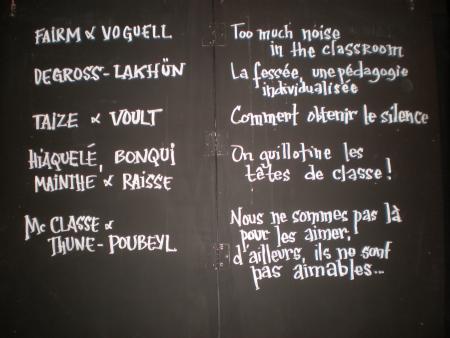 FAIRM & VOGUELL
Too much noise
in the classroom
DEGROSS-LAKHÜN
La fessée, une pédagogie
individualisée
TAIZE & VOULT
Comment obtenir le silence
HIAQUELÉ, BONQUI
MAINTHE & RAISSE
On guillotine les
têtes de classe!
Mc CLASSE &
THUNE-POUBEYL
Nous ne sommes pas là
pour les aimer,
d'ailleurs, ils ne sont
pas aimables...